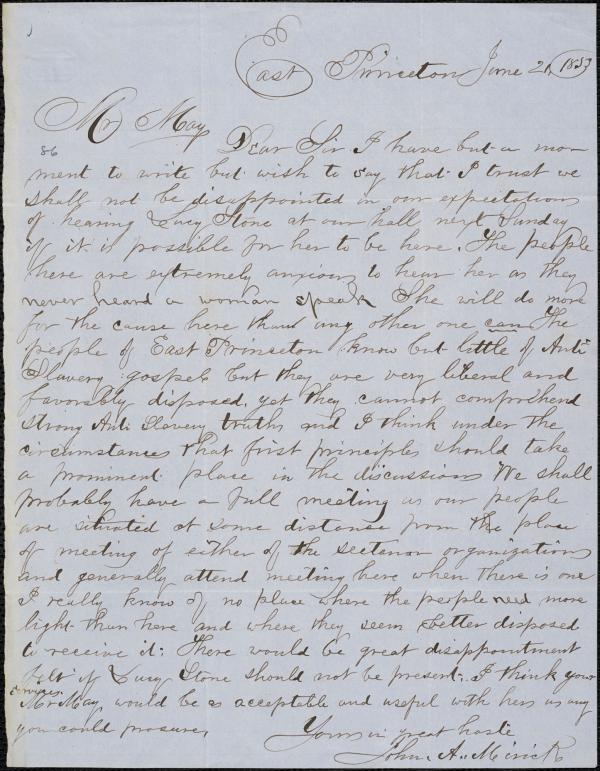 East Princeton June 21, 1853
Mr May
86
Dear Sir I have but a mo-
ment to write but wish to say that I trust we
shall not be disappointed in our expectations
of hearing Lucy Stone at our hall next Sunday
if it is possible for her to be here. The people
here are extremely anxious to hear her as they
never heard a woman speak She will do more
for the cause here than any other one can The
people of East Princeton know but little of Anti
Slavery gospel but they are very liberal and
favorably disposed, yet they cannot comprehend
strong Anti Slavery truths and I think under the
circumstances that first principles should take
a prominent place in the discussions We shall
probably have a full meeting as our people
are situated at some distance from the place
of meeting of either of the sectarian organizations
and generally attend meeting here when there is one
I really know of no place where the people need more
light than here and where they seem better disposed
to receive it: There would be great disappointment
felt if Lucy Stone should not be present. I think your
services
Mr May, would be as acceptable and useful with hers as any
you could procure,
Yours in great haste
John A. Mirick